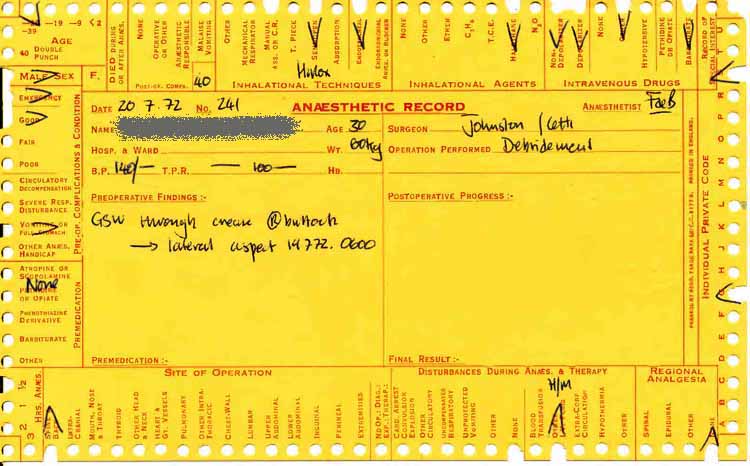 -39 -19 -9 <2
AGE
40 DOUBLE PUNCH
DIED DURING OR AFTER ANÆS.
NONE
OPERATIVE OR OTHER
ANÆSTHETIC RESPONSIBLE
MALAISE VOMITING
OTHER
POST-OP. COMPS.
40
MECHANICAL RESPIRATOR
MANUAL ASS. OR C.R.
T. PIECE
ABSORPTION
INHALATIONAL TECHNIQUES
NONE
OTHER
ETHER
C3H6
T.C.E.
N2O
INHALATIONAL AGENTS
NON-DEPOLARIZER
DEPOLARIZER
NONE
HYPOTENSIVE
PETHIDINE OR OPIATE
INTRAVENOUS DRUGS
RECORD OF SPECIAL INTEREST
MALE SEX F.
EMERGENCY
GOOD
FAIR
POOR
CIRCULATORY DECOMPENSATION
SEVERE RESP. DISTURBANCE
VOMITING OR FULL STOMACH
OTHER ANÆS. HANDICAP
PRE-OP. COMPLICATIONS & CONDITION
ATROPINE OR SCOPOLAMINE
None
OR OPIATE
PHENOTHIAZINE DERIVATIVE
BARBITURATE
OTHER
PREMEDICATION
DATE 20 7.72 NO. 241 ANÆSTHETIC RECORD ANÆSTHETIST
NAME AGE 30 SURGEON Johnston
HOSP. & WARD WT. 60kg OPERATION PERFORMED Debridement
B.P. 140/— T.P.R. — 100 — HB.
PREOPERATIVE FINDINGS :- POSTOPERATIVE PROGRESS :-
GSW through crease Ⓡ buttock
→ lateral aspect 19772. 0600
PREMEDICATION :- FINAL RESULT :-
INDIVIDUAL PRIVATE CODE
U T S R Q P O N M L K J H G F E D C B A
HRS. ANÆS.
½ 1 2 3
SITE OF OPERATION
INTRA-CRANIAL
MOUTH, NOSE & THROAT
THYROID
OTHER HEAD & NECK
HEART & GT. VESSELS
PULMONARY
OTHER INTRA-THORACIC
CHEST-WALL
LUMBAR
UPPER ABDOMINAL
LOWER ABDOMINAL
INGUINAL
PERINEAL
EXTREMITIES
DISTURBANCES DURING ANÆS. & THERAPY
CARD. ARREST
CONVULSION EXPLOSION
OTHER CIRCULATORY
UNCOMPENSATED RESPIRATORY
UNPROTECTED VOMITING
OTHER
NONE
H/M
BLOOD TRANSFUSION
EXTRA-CORP. CIRCULATION
HYPOTHERMIA
OTHER
REGIONAL ANALGESIA
SPINAL
EPIDURAL
OTHER